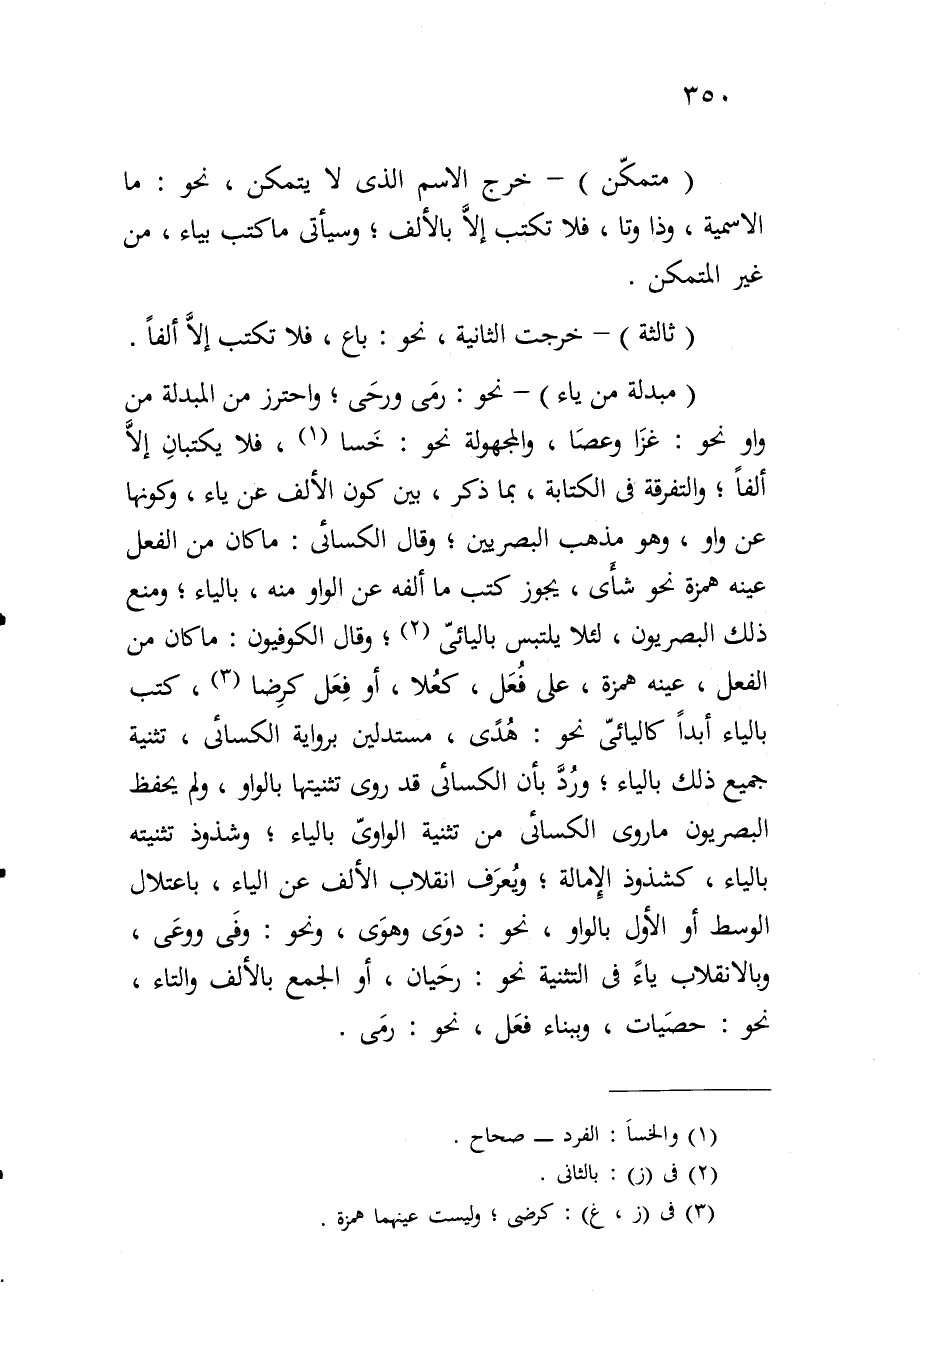 ٣٥٠
( متمكّن ) – خرج الاسم الذى لا يتمكن ، نحو : ما
الاسمية ، وذا وتا ، فلا تكتب إلاَّ بالألف ؛ وسيأتى ماكتب بياء ، من
غير المتمكن .
( ثالثة ) – خرجت الثانية ، نحو : باع ، فلا تكتب إلاَّ ألفاً .
( مبدلة من ياء ) – نحو : رمَى ورحَى ؛ واحترز من المبدلة من
واو نحو : غزَا وعصَا ، والمجهولة نحو : خَسا (١) ، فلا يكتبانِ إلاَّ
ألفاً ؛ والتفرقة فى الكتابة ، بما ذكر ، بين كون الألف عن ياء ، وكونها
عن واو ، وهو مذهب البصريين ؛ وقال الكسائى : ماكان من الفعل
عينه همزة نحو شأَى ، يجوز كتب ما ألفه عن الواو منه ، بالياء ؛ ومنع
ذلك البصريون ، لئلا يلتبس باليائىّ (٢) ؛ وقال الكوفيون : ماكان من
الفعل ، عينه همزة ، على فُعَل ، كعُلا ، أو فِعَل كرِضا (٣) ، كتب
بالياء أبداً كاليائىّ نحو : هُدًى ، مستدلين برواية الكسائى ، تثنية
جميع ذلك بالياء ؛ ورُدَّ بأن الكسائى قد روى تثنيتها بالواو ، ولم يحفظ
البصريون ماروى الكسائى من تثنية الواوىّ بالياء ؛ وشذوذ تثنيته
بالياء ، كشذوذ الإمالة ؛ ويُعرَف انقلاب الألف عن الياء ، باعتلال
الوسط أو الأول بالواو ، نحو : دوَى وهوَى ، ونحو : وفَى ووعَى ،
وبالانقلاب ياءً فى التثنية نحو : رحَيان ، أو الجمع بالألف والتاء ،
نحو : حصَيات ، وببناء فعَل ، نحو : رمَى .
(١) والخسَا : الفرد ــ صحاح .
(٢) فى (ز) : بالثانى .
(٣) فى (ز ، غ) : كرضى ؛ وليست عينهما همزة .